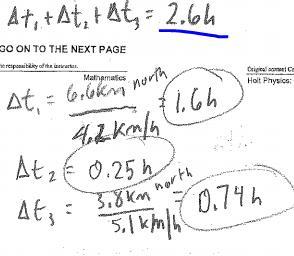 Δt₁ + Δt₂ + Δt₃ = 2.6h
GO ON TO THE NEXT PAGE
responsibility of the instructor.
Original content Co
Mathematics
Holt Physics:
Δt₁ = 6.6km north / 4.2 km/h = 1.6h
Δt₂ = 0.25h
Δt₃ = 3.8km north / 5.1km/h = 0.74h